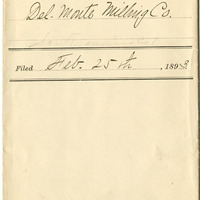 Del. Monte Milling Co.
Filed Feb. 25th, 1893